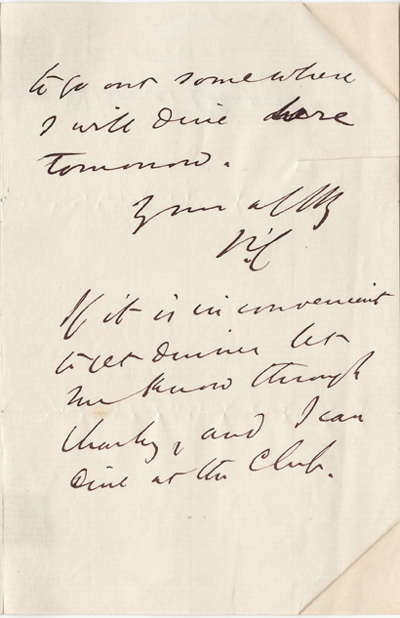 to go out somewhere
I will dine here
tomorrow.
Your aff
If it is inconvenient
to get dinner let
me know through
Charley, and I can
dine at the Club.